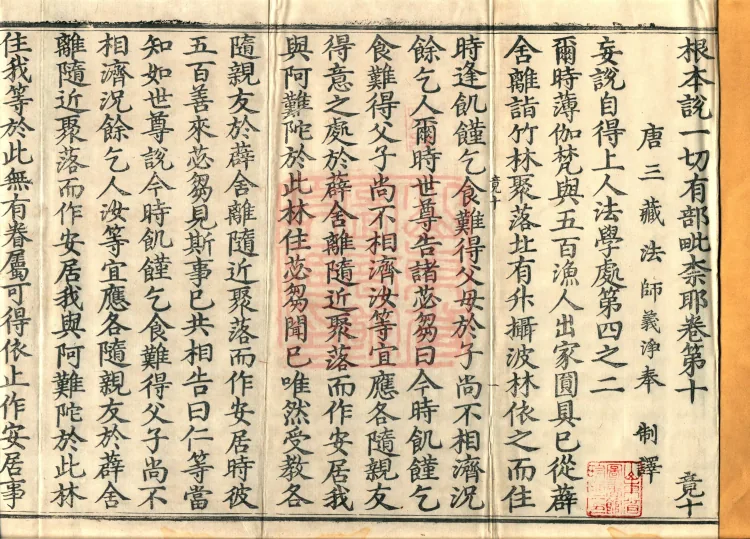 根本說一切有部毗柰耶卷第十 竟十
唐三藏法師義淨奉 制譯
妄說自得上人法學處第四之二
爾時薄伽梵與五百漁人出家圓具已從薜
舍離詣竹林聚落北有升攝波林依之而住
竟十
時逢飢饉乞食難得父母於子尚不相濟況
餘乞人爾時世尊告諸苾芻曰今時飢饉乞
食難得父子尚不相濟汝等宜應各隨親友
得意之處於薜舍離隨近聚落而作安居我
與阿難陀於此林住苾芻聞已唯然受教各
隨親友於薜舍離隨近聚落而作安居時彼
五百善來苾芻見斯事已共相告曰仁等當
知如世尊說今時飢饉乞食難得父子尚不
相濟況餘乞人汝等宜應各隨親友於薜舍
離隨近聚落而作安居我與阿難陀於此林
住我等於此無有眷屬可得依止作安居事